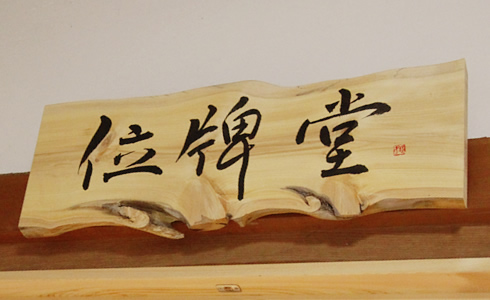 位牌堂